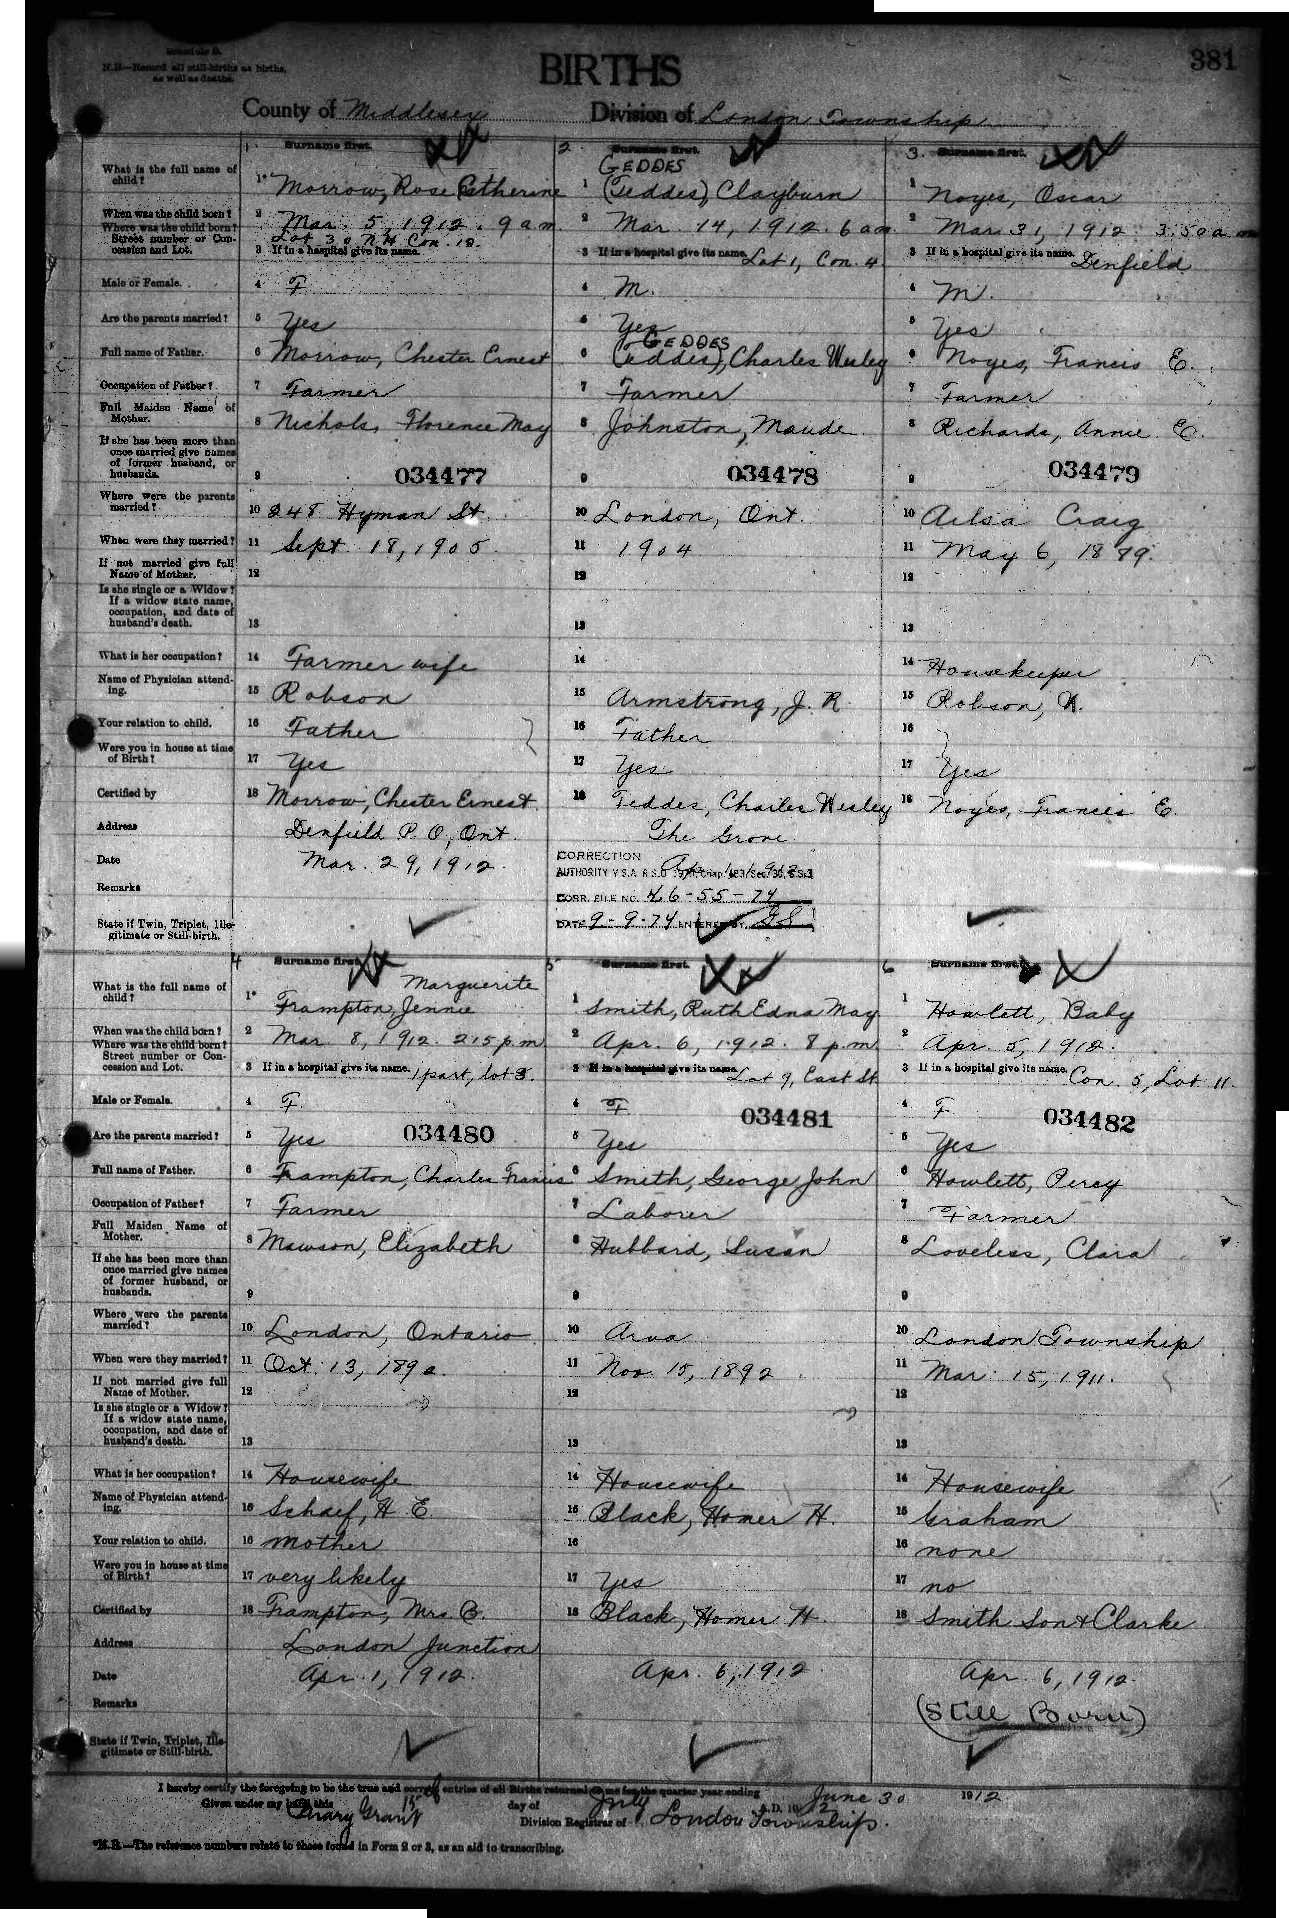 Schedule B.
N.B.—Record all still-births as births,
as well as deaths.
BIRTHS
381
County of Middlesex
Division of London Township
1. Surname first.
2 Surname first.
3. Surname first.
What is the full name of child?
1* Morrow, Rose Catherine
GEDDES
1 (Teddes), Clayburn
1 Noyes, Oscar
When was the child born?
2 Mar. 5, 1912. 9 a m
2 Mar. 14, 1912. 6 am
2 Mar. 31, 1912 3:50 a m
Where was the child born? Street number or Concession and Lot.
Lot 30 N H Con. 12.
3 If in a hospital give its name.
3 If in a hospital give its name. Lot 1, Con. 4
3 If in a hospital give its name. Denfield
Male or Female.
4 F
4 M.
4 M.
Are the parents married?
5 Yes
5 Yes
5 Yes
Full name of Father.
6 Morrow, Chester Ernest
GEDDES
6 (Teddes), Charles Wesley
6 Noyes, Francis E.
Occupation of Father?
7 Farmer
7 Farmer
7 Farmer
Full Maiden Name of Mother.
8 Nichols, Florence May
8 Johnston, Maude
8 Richards, Annie E.
If she has been more than once married give names of former husband, or husbands.
9 034477
9 034478
9 034479
Where were the parents married?
10 248 Hyman St.
10 London, Ont.
10 Ailsa Craig
When were they married?
11 Sept 18, 1905
11 1904
11 May 6, 1889.
If not married give full Name of Mother.
12
12
12
Is she single or a Widow? If a widow state name, occupation, and date of husband's death.
13
13
13
What is her occupation?
14 Farmer wife
14
14 Housekeeper
Name of Physician attending.
15 Robson
15 Armstrong, J. R.
15 Robson, W.
Your relation to child.
16 Father
16 Father
16
Were you in house at time of Birth?
17 Yes
17 Yes
17 Yes
Certified by
18 Morrow, Chester Ernest
18 Teddes, Charles Wesley
18 Noyes, Francis E.
Address
Denfield P. O., Ont.
The Grove
Date
Mar. 29, 1912.
CORRECTION
AUTHORITY V.S.A. R.S.O.
Remarks
CORR. FILE NO. 46-55-74
State if Twin, Triplet, Illegitimate or Still-birth.
DATE 9-9-74 ENTERED BY GS
4 Surname first.
5 Surname first.
6 Surname first.
What is the full name of child?
Marguerite
1* Frampton, Jennie
1 Smith, Ruth Edna May
1 Howlett, Baby
When was the child born?
2 Mar 8, 1912. 215 p.m
2 Apr. 6, 1912. 8 p.m
2 Apr. 5, 1912.
Where was the child born? Street number or Concession and Lot.
3 If in a hospital give its name. 1 part, lot 3.
3 If in a hospital give its name. Lot 9, East St
3 If in a hospital give its name. Con. 5, Lot 11.
Male or Female.
4 F
4 F
4 F
Are the parents married?
5 Yes 034480
5 Yes 034481
5 Yes 034482
Full name of Father.
6 Frampton, Charles Francis
6 Smith, George John
6 Howlett, Percy
Occupation of Father?
7 Farmer
7 Laborer
7 Farmer
Full Maiden Name of Mother.
8 Mawson, Elizabeth
8 Hubbard, Susan
8 Loveless, Clara
If she has been more than once married give names of former husband, or husbands.
9
9
9
Where were the parents married?
10 London, Ontario
10 Arva
10 London Township
When were they married?
11 Oct. 13, 1892.
11 Nov 15, 1892
11 Mar. 15, 1911.
If not married give full Name of Mother.
12
12
12
Is she single or a Widow? If a widow state name, occupation, and date of husband's death.
13
13
13
What is her occupation?
14 Housewife
14 Housewife
14 Housewife
Name of Physician attending.
15 Schaef, H E.
15 Black, Homer H.
15 Graham
Your relation to child.
16 Mother
16
16 none
Were you in house at time of Birth?
17 very likely
17 Yes
17 no
Certified by
18 Frampton, Mrs C.
18 Black, Homer H.
18 Smith Son & Clarke
Address
London Junction
Date
Apr. 1, 1912.
Apr. 6, 1912
Apr. 6, 1912.
Remarks
(Still Born)
State if Twin, Triplet, Illegitimate or Still-birth.
I hereby certify the foregoing to be the true and correct entries of all Births returned to me for the quarter year ending June 30 1912
Given under my hand this 15th day of July A.D. 1912
Mary Grant Division Registrar of London Township.
*N.B.—The reference numbers relate to those found in Form 2 or 3, as an aid to transcribing.